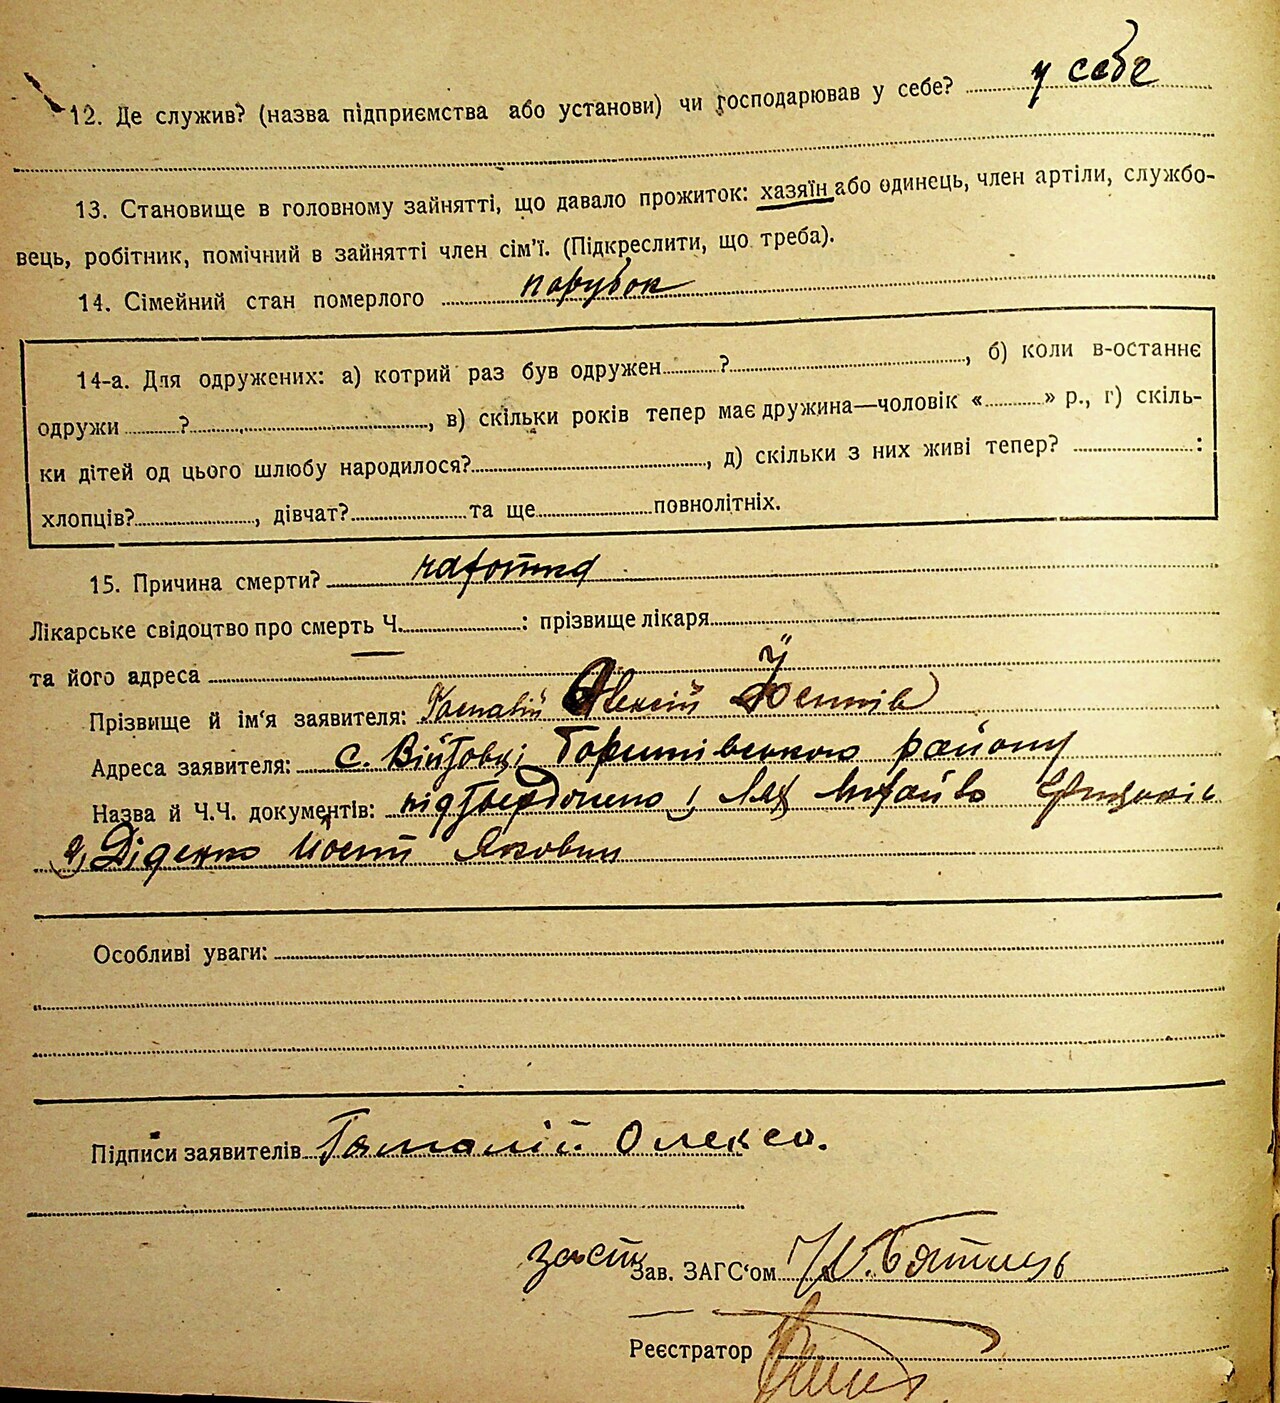 12. Де служив? (назва підприємства або установи) чи господарював у себе? у себе
13. Становище в головному зайнятті, що давало прожиток: хазяїн або одинець, член артіли, службо-
вець, робітник, помічний в зайнятті член сім'ї. (Підкреслити, що треба).
14. Сімейний стан померлого парубок
14-а. Для одружених: а) котрий раз був одружен ?, б) коли в-останнє
одружи ?, в) скільки років тепер має дружина—чоловік « » р., г) скіль-
ки дітей од цього шлюбу народилося?, д) скільки з них живі тепер? :
хлопців?, дівчат? та ще повнолітніх.
15. Причина смерти?
Лікарське свідоцтво про смерть Ч. : прізвище лікаря
та його адреса
Прізвище й ім'я заявителя: Гамалій Олексій
Адреса заявителя: с. Війтовці району
Назва й Ч.Ч. документів: підтверджено 1)
2) Діденко Якович
Особливі уваги:
Підписи заявителів Гамалій Олекса.
заст Зав. ЗАГС'ом
Реєстратор